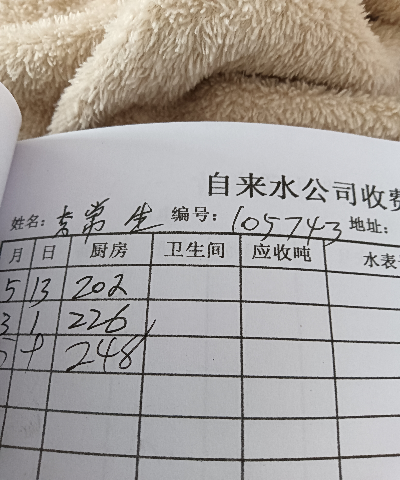 自来水公司收费
姓名: 常生 编号: 105743 地址:
月 日 厨房 卫生间 应收吨 水表
5 13 202
3 1 226
248